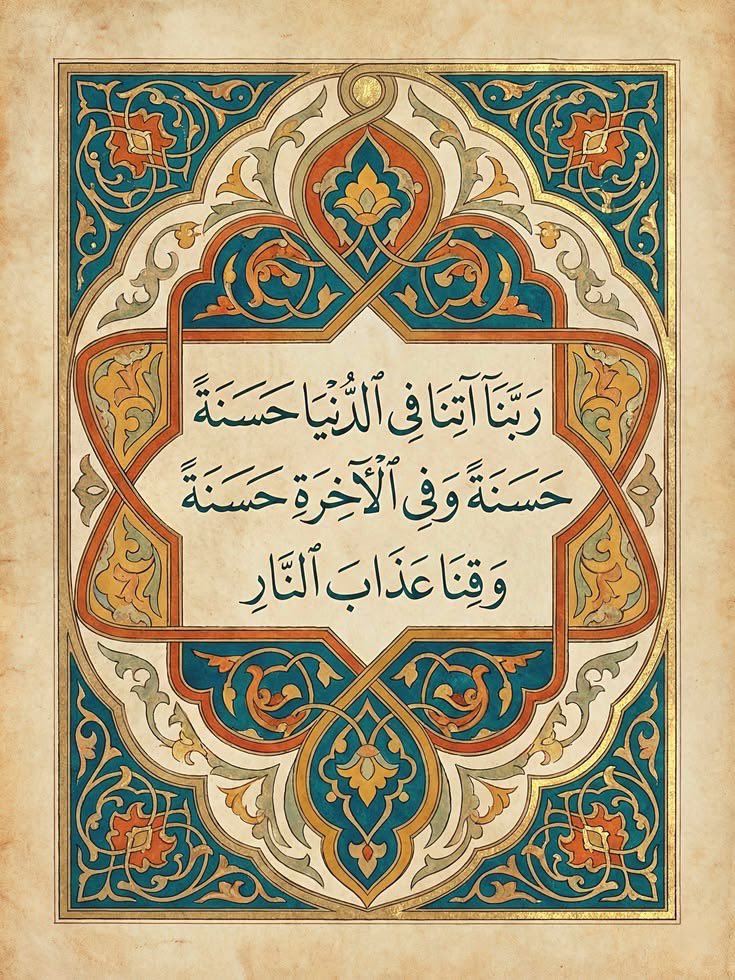 رَبَّنَآ آتِنَا فِى ٱلدُّنْيَا حَسَنَةً
حَسَنَةً وَفِى ٱلْآخِرَةِ حَسَنَةً
وَقِنَا عَذَابَ ٱلنَّارِ